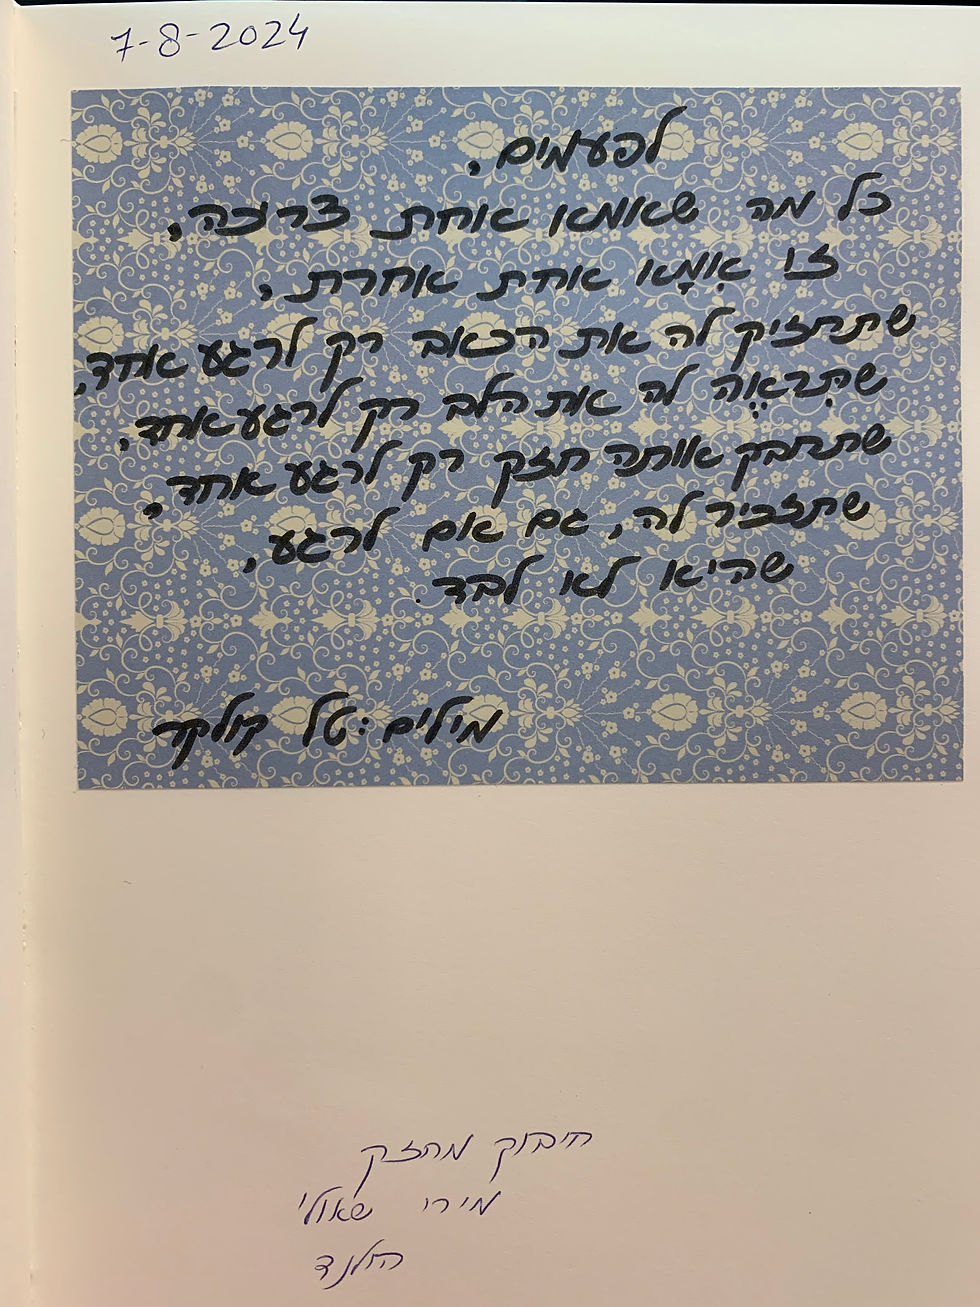 7-8-2024
לפעמים,
כל מה שאמא אחת צריכה,
זו אִמָא אחת אחרת,
שתחזיק לה את הכאב רק לרגע אחד,
שתִראֶה לה את הלב רק לרגע אחד,
שתחבק אותה חזק רק לרגע אחד,
שתזכיר לה, גם אם לרגע,
שהיא לא לבד.
מילים: טל קולקר
חיבוק מחזק
מירי שאולי
הולנד